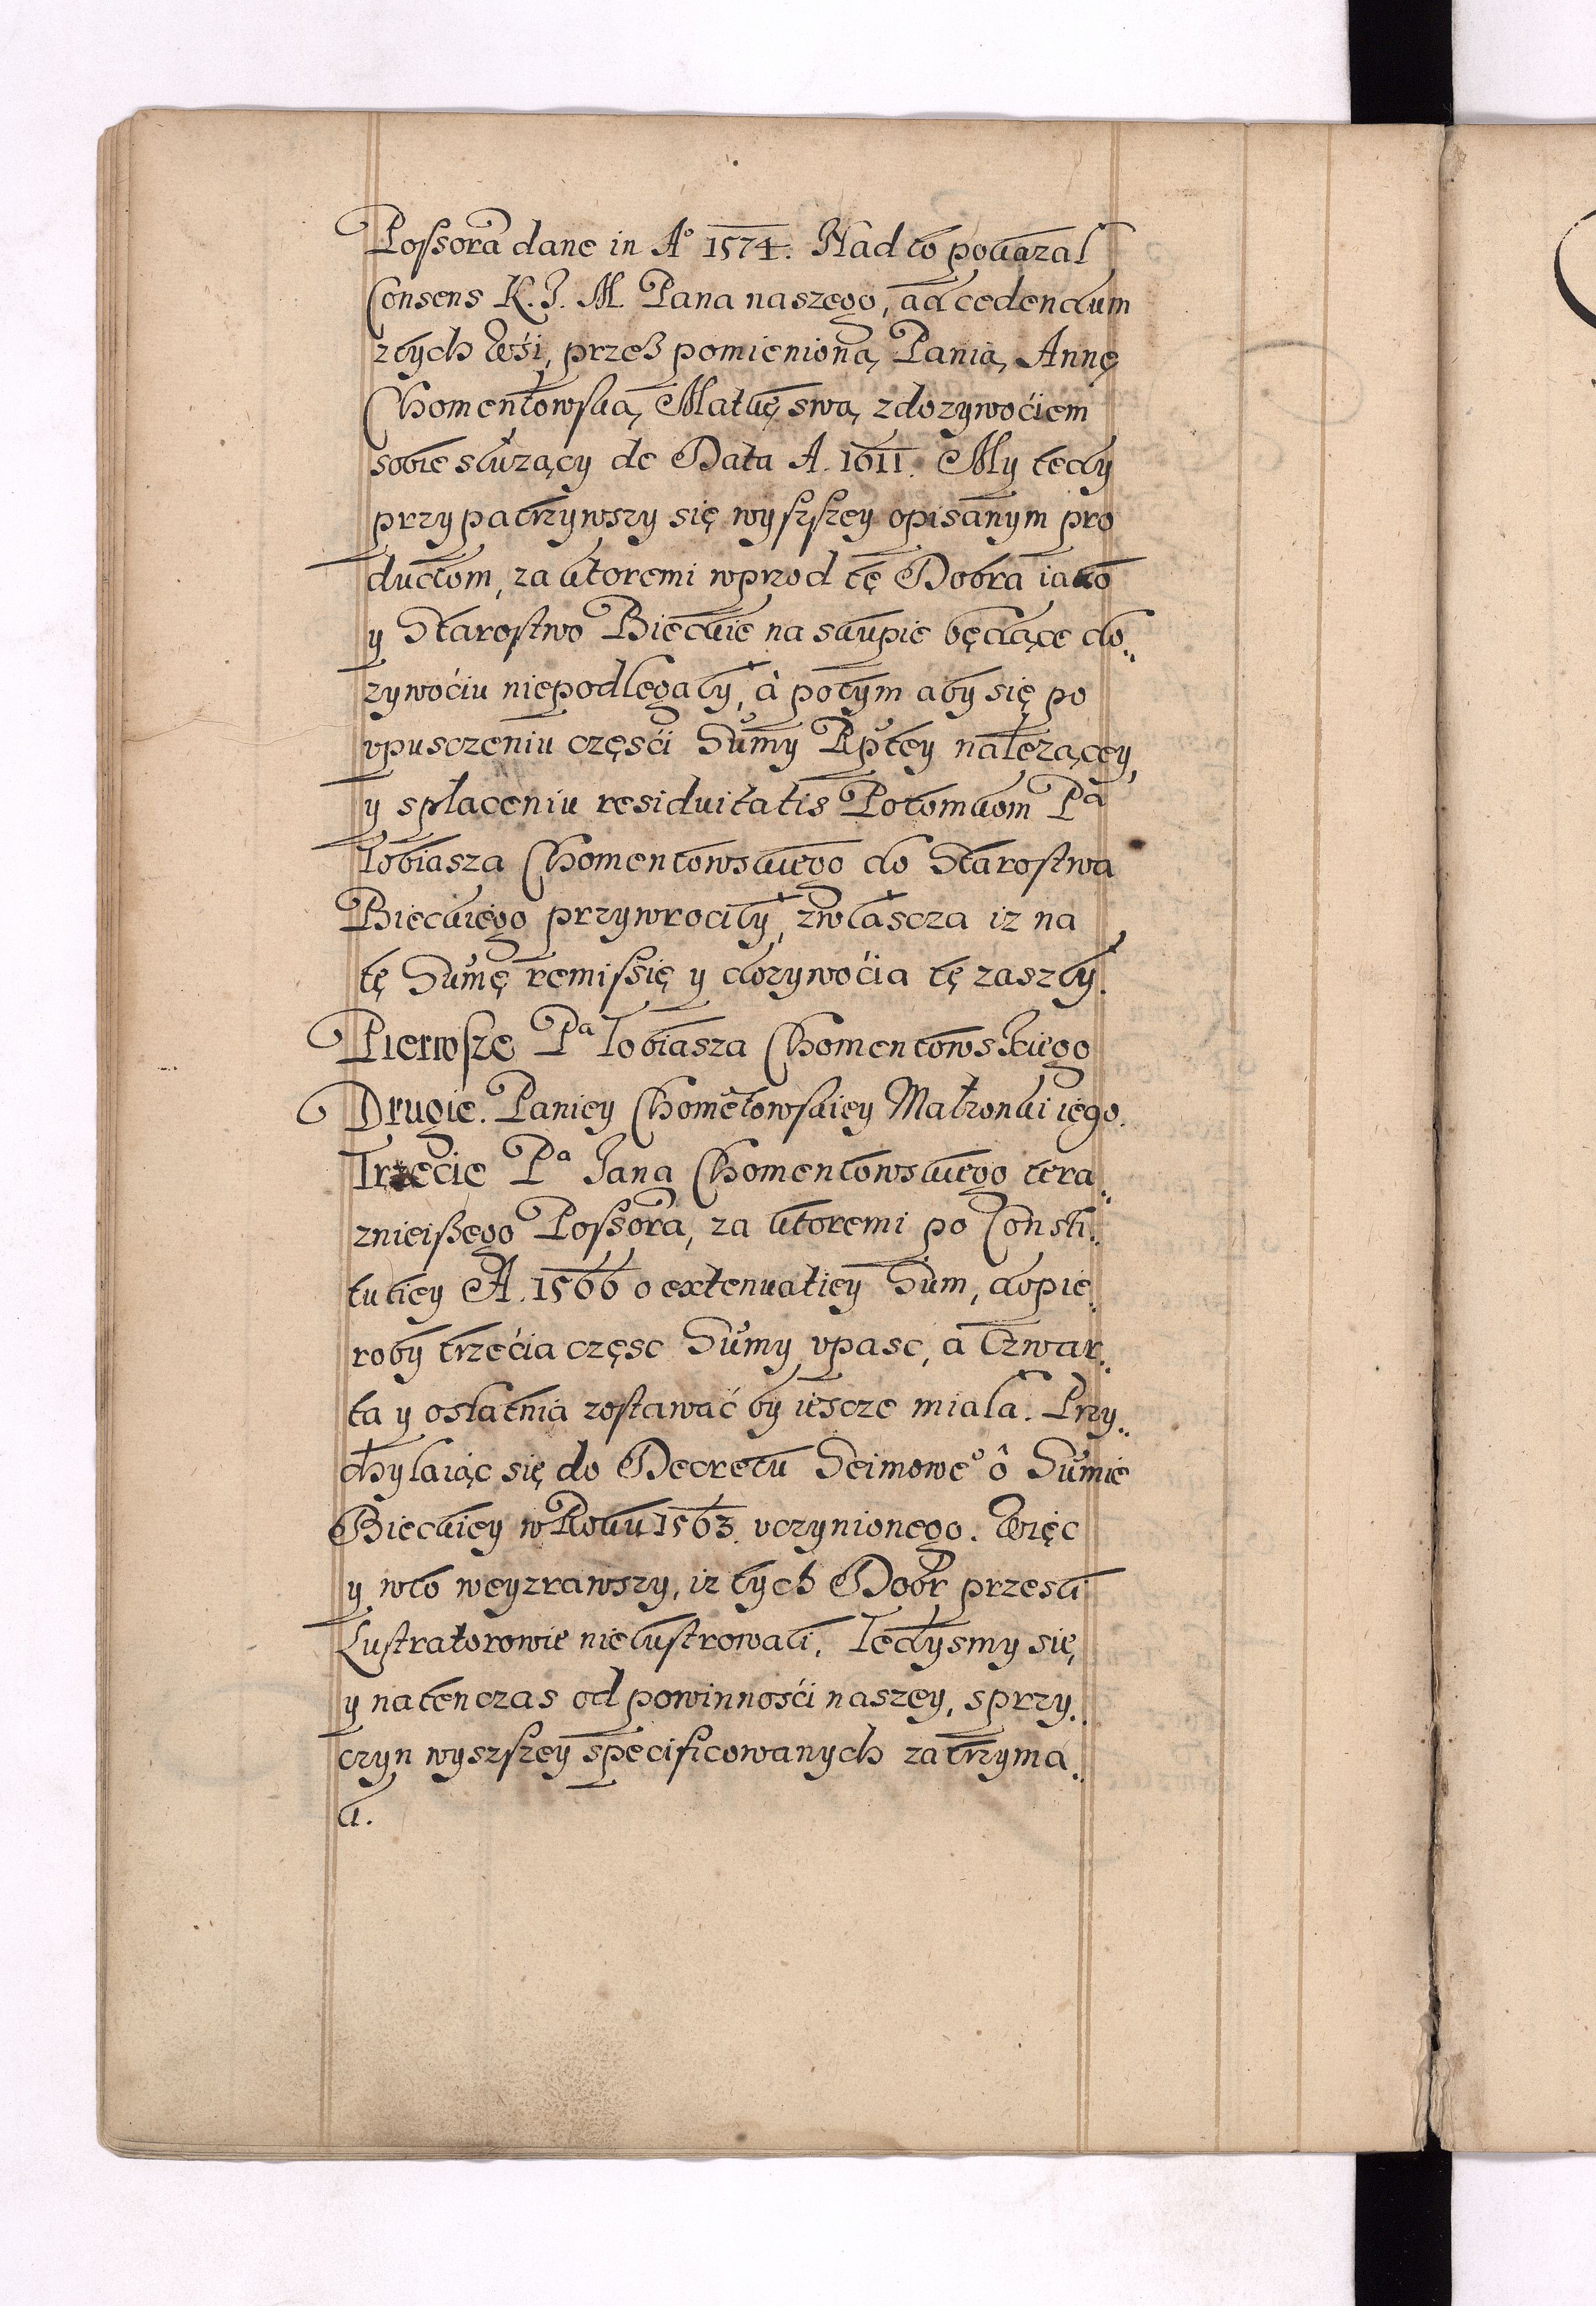 Possora dane in Aº 1574. Nad to pokazal
Consens K. J. M. Pana naszego, ad cedendum
z tych Wśi, przeß pomienioną Panią Annę
Chomentowską, Matkę swą, z dozywoćiem
sobie słuzący de Data A. 1611. My tedy
przypatrzywszy się wyszszey opisanym pro
ductom, za ktoremi wprzod tę Dobra iako
y Starostwo Bieckie na skupie będące do„
zywoćiu niepodlegały, à potym aby się po
vpusczeniu częsći Sumy Rptey nalezącey,
y spłaceniu residuitatis Potomkom Pª
Tobiasza Chomentowskiego do Starostwa
Bieckiego przywrociły, zwłascza iz na
tę Sumę remissię y dozywoćia tę zaszły.
Pierwsze Pª Tobiasza Chomentowskiego
Drugie. Paniey Chomētowskiey Małzonki iego.
Trzecie Pª Jana Chomentowskiego tera„
znieißego Possora, za ktoremi po Consti„
tutiey A. 1566 o extenuatiey Sum, dopie„
roby trzećia częsc Sumy vpasc, a czwar„
ta y ostatnia zostawać by iescze miala. Przy„
chylaiąc się do Decretu Seimoweº ô Sumie
Bieckiey w Roku 1563. vczynionego. Więc
y wto weyzrawszy, iz tych Dobr przesli
Lustratorowie nielustrowali. Tedysmy się
y natenczas od powinnośći naszey, sprzy„
czyn wyszszey specificowanych zatrzyma„
li.